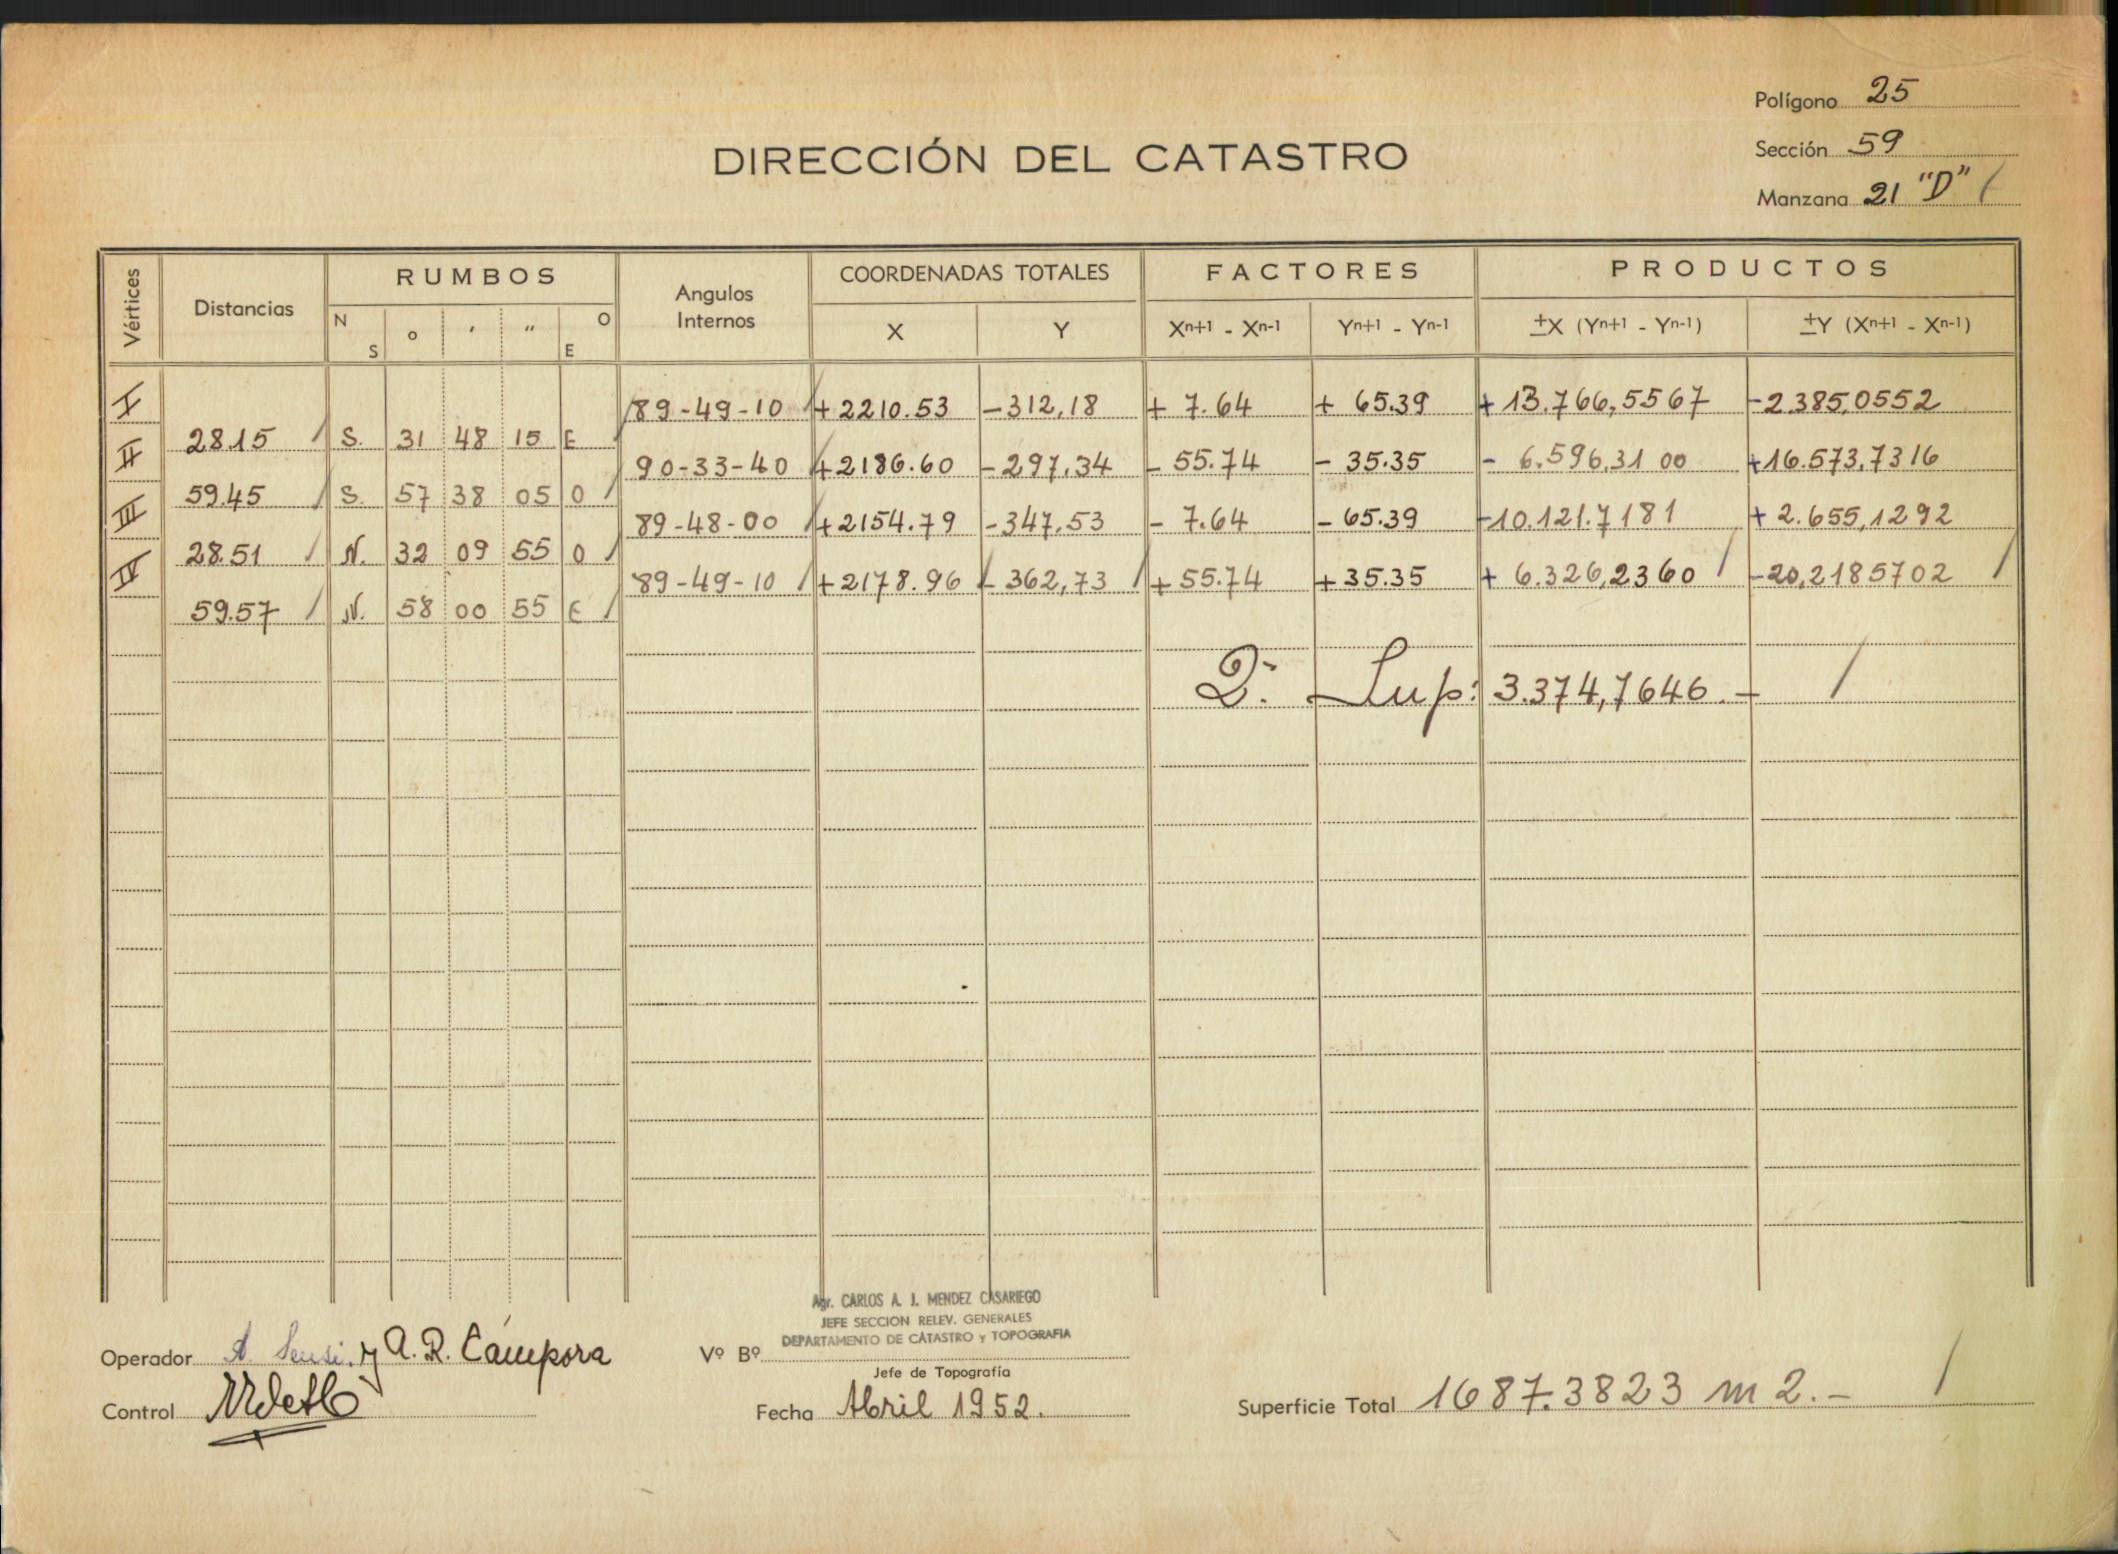 Polígono 25
Sección 59
Manzana 21 "D"
DIRECCIÓN DEL CATASTRO
Vértices Distancias RUMBOS N S o ′ ″ O E Angulos Internos COORDENADAS TOTALES X Y FACTORES Xn+1 - Xn-1 Yn+1 - Yn-1 PRODUCTOS ±X (Yn+1 - Yn-1) ±Y (Xn+1 - Xn-1)
I 89-49-10 +2210.53 -312,18 + 7.64 + 65.39 + 13.766,5567 -2.385,0552
28.15 S. 31 48 15 E
II 90-33-40 +2186.60 -297,34 - 55.74 - 35.35 - 6.596,31 00 +16.573,7316
59.45 S. 57 38 05 O
III 89-48-00 +2154.79 -347.53 - 7.64 - 65.39 -10.121.7181 + 2.655,1292
28.51 N. 32 09 55 O
IV 89-49-10 +2178.96 - 362,73 + 55.74 +35.35 + 6.326,2360 -20,2185702
59.57 N. 58 00 55 E
2. Sup: 3.374,7646.-
Agr. CARLOS A. J. MENDEZ CASARIEGO
JEFE SECCION RELEV. GENERALES
DEPARTAMENTO DE CATASTRO y TOPOGRAFIA
Operador y A. R. Cámpora
Vº Bº
Jefe de Topografía
Control
Fecha Abril 1952.
Superficie Total 1687.3823 m 2.-